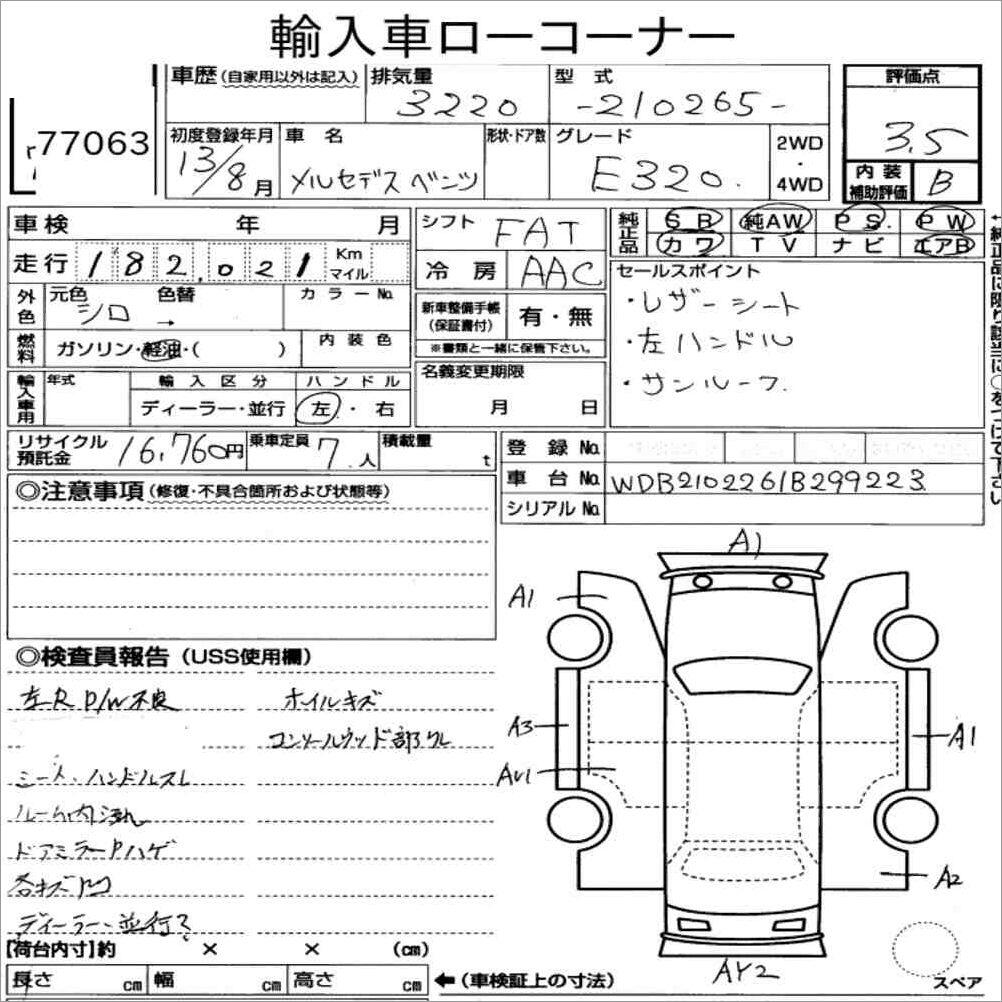 輸入車ローコーナー
77063
車歴(自家用以外は記入) 排気量 3220 型式 -210265-
初度登録年月 13/8月 車名 メルセデスベンツ 形状・ドア数 グレード E320. 2WD・4WD
評価点 3.5
内装補助評価 B
車検 年 月
走行 182,021 Km マイル
外色 元色 シロ 色替 → カラーNo.
燃料 ガソリン・軽油・( ) 内装色
輸入車用 年式 輸入区分 ディーラー・並行 ハンドル 左・右
シフト FAT
冷房 AAC
新車整備手帳(保証書付) 有・無
※書類と一緒に保管下さい。
名義変更期限 月 日
純正品 SB 純AW PS PW
カワ TV ナビ エアB
セールスポイント
・レザーシート
・左ハンドル
・サンルーフ.
←純正品に限り該当に○をつけて下さい
リサイクル預託金 16,760円 乗車定員 7人 積載量 t
登録No.
車台No. WDB2102261B299223
シリアルNo.
◎注意事項(修復・不具合箇所および状態等)
◎検査員報告(USS使用欄)
左R P/W不良
シート、ハンドルスレ
ルーム内汚れ
ドアミラーPハゲ
各キズ凹
ディーラー、並行?
ホイルキズ
コンソールウッド部ワレ
A1
A1
A3
A1
A2
AY2
スペア
【荷台内寸】約 × × (cm)
長さ cm 幅 cm 高さ cm ←(車検証上の寸法)